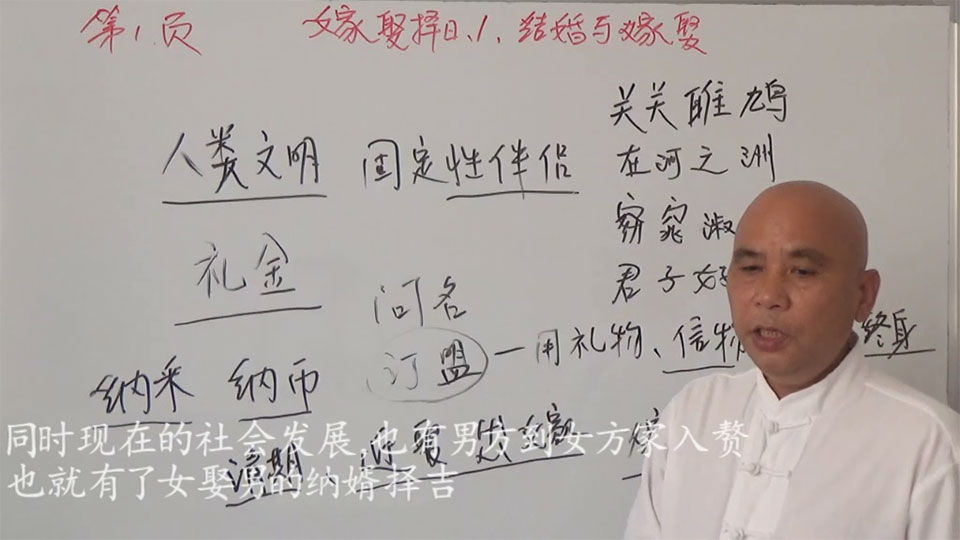 第1页 嫁娶择日、1、结婚与嫁娶
人类文明 固定性伴侣
关关雎鸠
在河之洲
窈窕淑
君子好
礼金
问名
纳采 纳币
订盟 一用礼物、信物
终身
请期、迎娶
同时现在的社会发展 也有男方到女方家入赘
也就有了女娶男的纳婿择吉